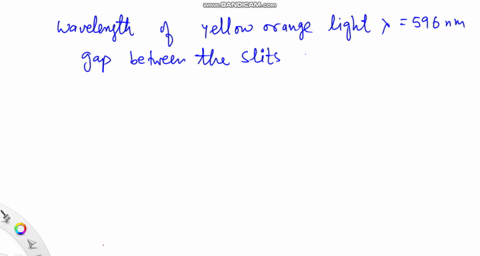 www.BANDICAM.com
wavelength of yellow orange light λ = 596 nm
gap between the slits